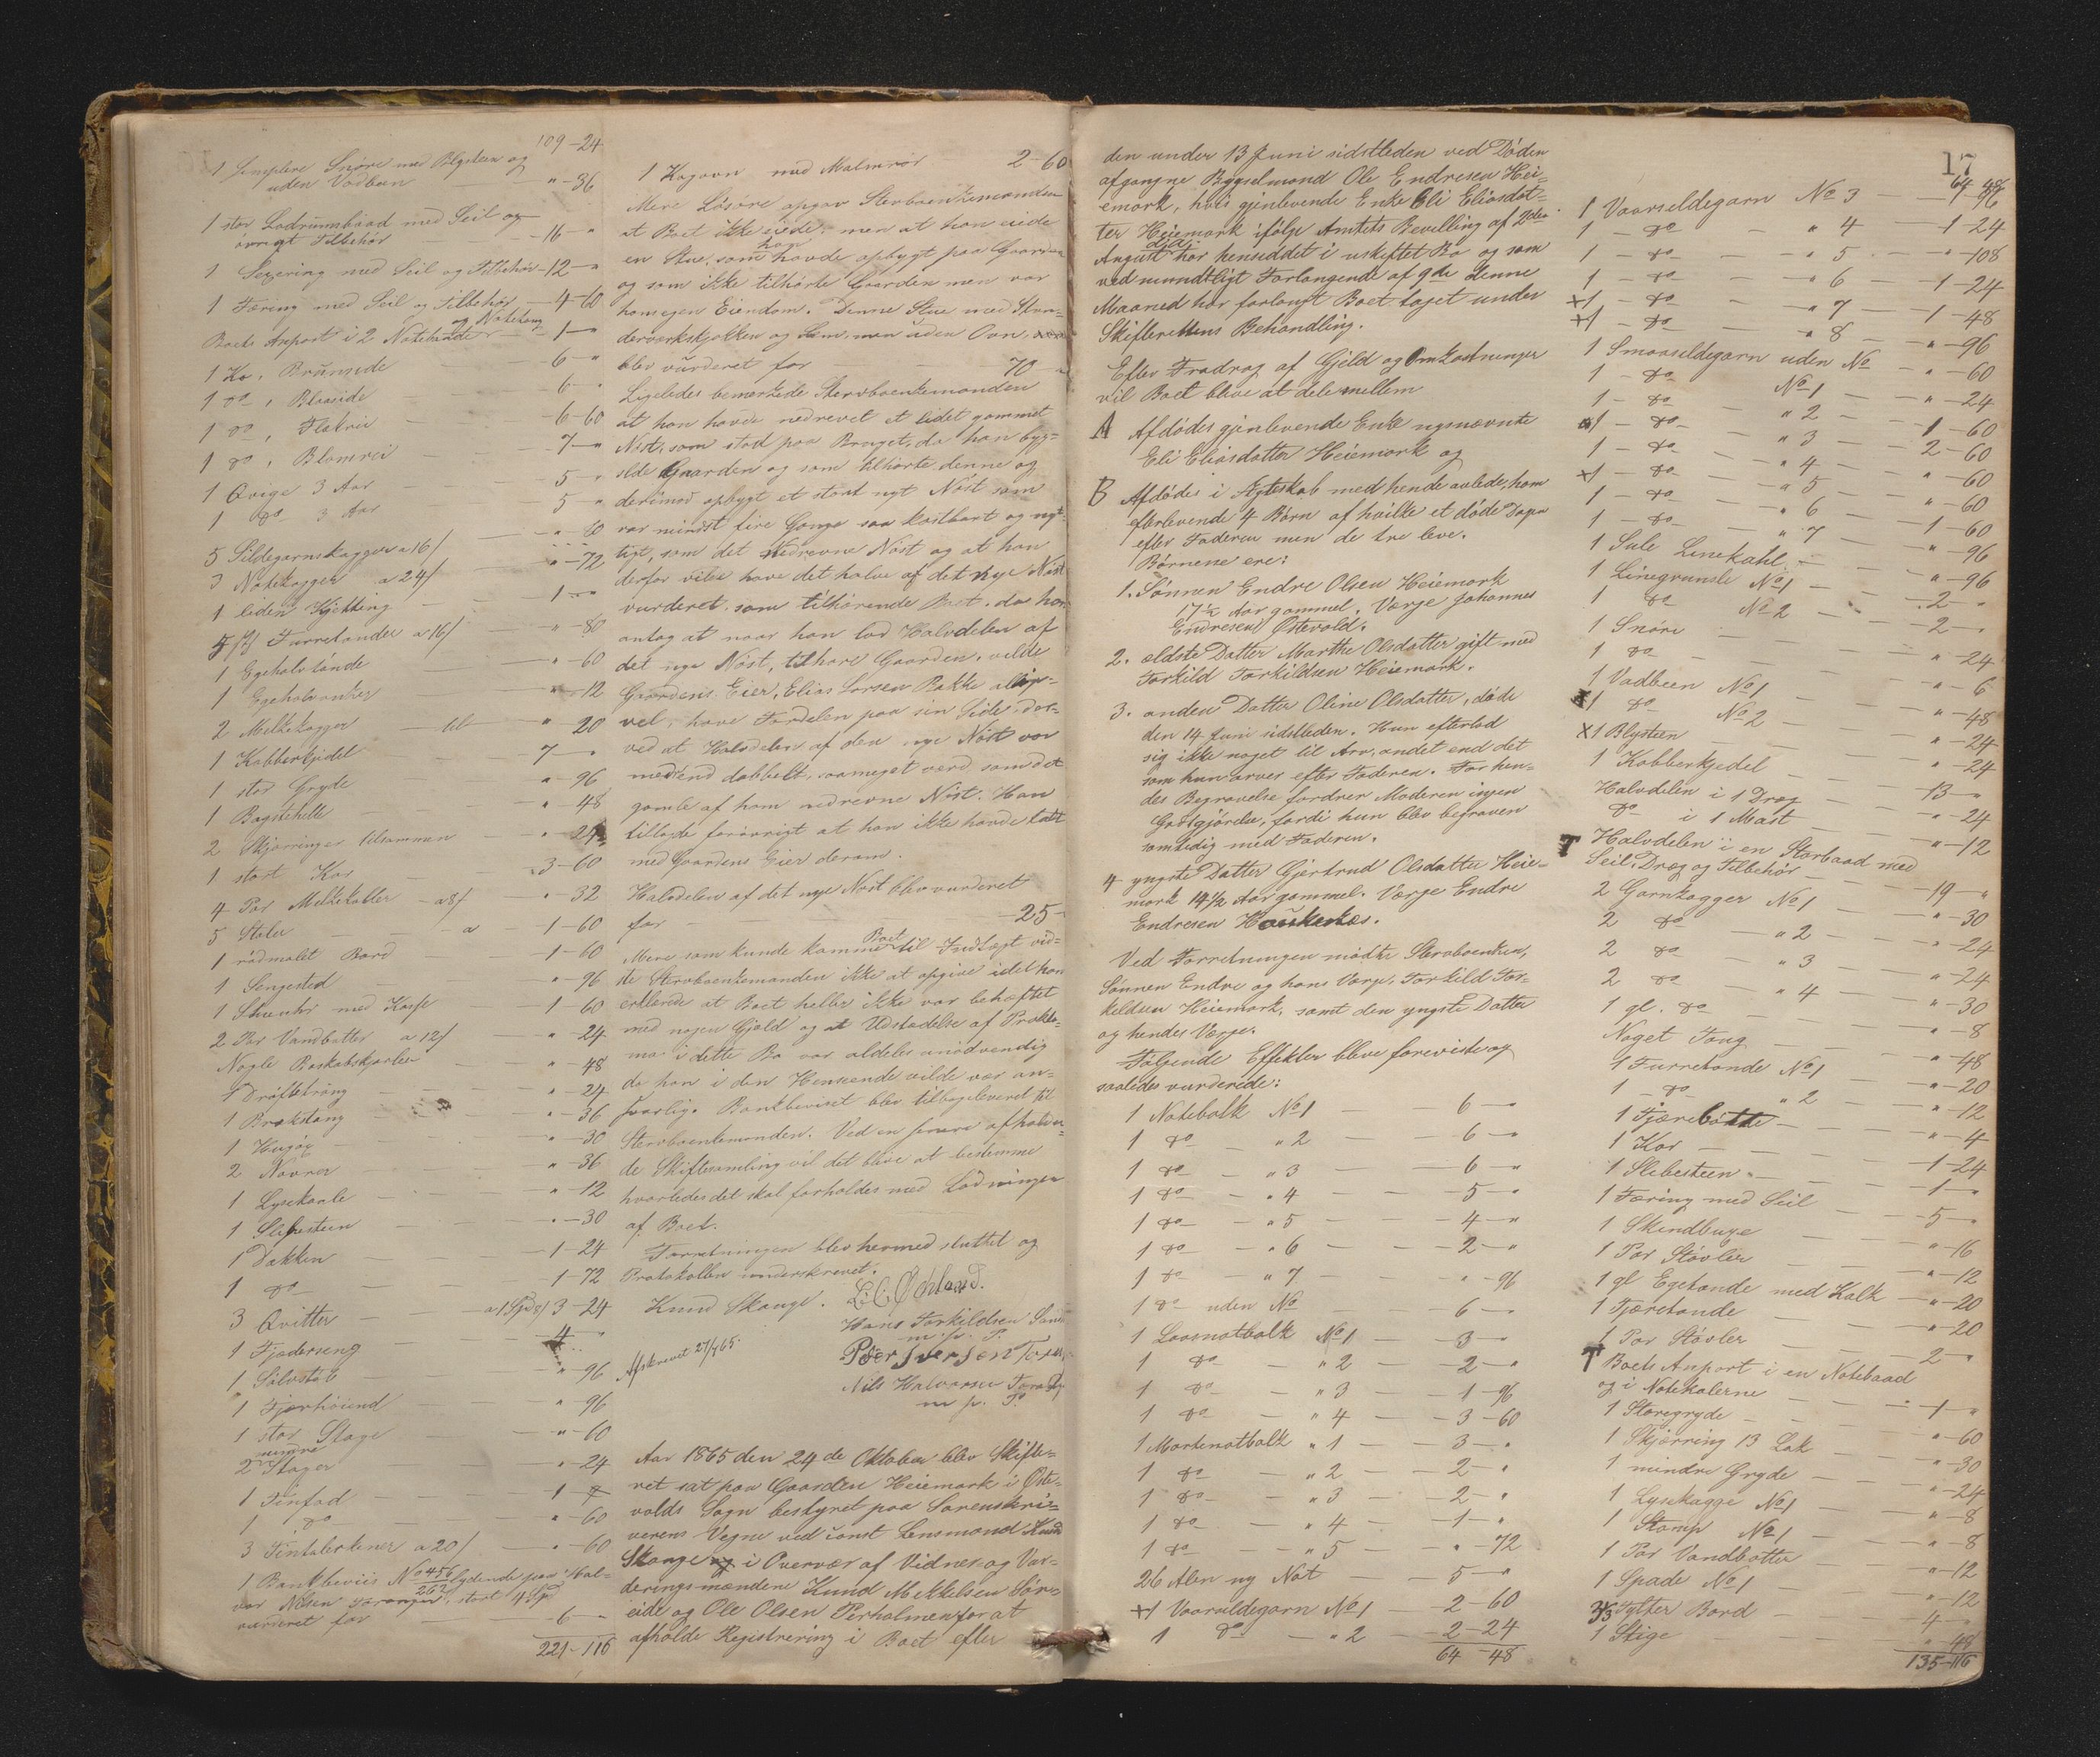 109-24
1 Simplere Snöre med Blysteen og
uden Vadbeen - "-36
1 stor Ladrumsbaad med Seil og
övrigt Tilbehör - 16-"
1 Sexering med Seil og Tilbehör - 12-"
1 Færing med Seil og Tilbehör - 4-60
og Notetoug
Boets Anport i 2 Notebaade - 1-"
1 Ko, Brunside - 6-"
1 do, Blaaside - 6-"
1 do, Flekrei - 6-60
1 do, Blomrei - 7-"
1 Qvige 3 Aar - 5-"
1 do 3 Aar - 5-"
5 Sildegarnskagger a 16/ - "-80
3 Notekagger a 24/ - "-72
1 liden Kjetting - 1-"
5 Furretønder a 16/ - "-80
1 Egehalvtönde - "-60
1 Egehalvanker - "-12
2 Melkekagger - til - "-20
1 Kobberkjedel - 7-"
1 stor Gryde - "-96
1 Bagstehelle - "-48
2 Skjærringer tilsammen - "-24
1 stort Kar - 3-60
4 Par Melkekoller - a 8/ - "-32
5 Stoler - a - 1-60
1 rödmalet Bord - 1-60
1 Sengested - "-96
1 Stueuhr med Kasse - 1-60
2 Par Vandbøtter a 12/ - "-24
Nogle Boskabskjørler - "-48
1 Dröftetroug - "-24
1 Brakstang - "-36
1 Huggöx - "-30
2 Navrer - "-36
1 Lysekoale - "-12
1 Slibesteen - "-30
1 Dækken - 1-24
1 do - 1-72
3 Qvitter - a 1 Spd 8/ 3-24
1 Fjæderseng - 4-"
1 Sölvstöb - "-96
1 Fjærhöiend - "-96
1 stor Stage - "-60
mindre
2 Stager - "-24
1 Tinfad - 1-"
1 do - "-60
3 Tintalerkener a 20/ - "-60
1 Bankbeviis No 456/262 lydende paa Hal-
vor Nilsen Torangen, stort 4 Spd
vurderet for - 6-"
221-116
1 Kogovn med Malmrör 2-60
Mere Lösöre opgav Stervboenkemanden
at Boet ikke eiede, men at han eiede
han
en Stue, som havde opbygt paa Gaarden
og som ikke tilhörte Gaarden men var
hans egen Eiendom. Denne Stue med Sten-
derværkskjøkken og Lem, men uden Ovn,
blev vurderet for - 70-"
Ligeledes bemærkede Stervboenkemanden
at han havde nedrevet et lidet gammelt
Nöst, som stod paa Bruget, da han byg-
slede Gaarden og som tilhørte denne og
derimod opbygt et stort nyt Nöst som
var mindst fire Gange saa kostbart og nyt-
tigt, som det nedrevne Nöst og at han
derfor vilde have det halve af det nye Nöst
vurderet, som tilhörende Boet, da han
antog at naar han lod Halvdelen af
det nye Nöst, tilhøre Gaarden, vilde
Gaardens Eier, Elias Larsen Bakke allige-
vel, have Fordelen paa sin Side, der-
ved at Halvdelen af den nye Nöst var
mer end dobbelt saameget værd, som det
gamle af ham nedrevne Nöst. Han
tillagde forøvrigt at han ikke havde talt
med Gaardens Eier derom.
Halvdelen af det nye Nöst blev vurderet
for - 25-
Boet
Mere som kunde komme til Indtægt vid-
ste Stervboenkemanden ikke at opgive idet han
erklærede at Boet heller ikke var behæftet
med nogen Gjæld og at Udstædelse af Prokla-
ma i dette Bo var aldeles unödvendig
da han i den Henseende vilde vær an-
svarlig. Bankbeviset blev tilbageleveret til
Stervboenkemanden. Ved en senere afholden-
de Skiftesamling vil det blive at bestemme
hvorledes det skal forholdes med Lodningen
af Boet.
Forretningen blev hermed sluttet og
Protokollen underskrevet.
Knud Skauge. L.C. Østland.
Hans Torkildsen
m. p. P.
Afskrevet 27/7 65. Peer Iversen
Nils Halvorsen
m. p. P.
Aar 1865 den 24de Oktober blev Skifte-
ret sat paa Gaarden Heiemark i Øste-
volds Sogn bestyret paa Sorenskri-
verens Vegne ved const Lensmand Knud
Skauge i Overvær af Vidner og Vur-
deringsmændene Knud Mikkelsen Sör-
eide og Ole Olsen Perholmen for at
afholde Registrering i Boet efter
17
den under 13 Juni sidstleden ved Døden
afgangne Bygselmand Ole Endresen Hei-
emark, hvis gjenlevende Enke Eli Eliasdat-
ter Heiemark ifølge Amtets Bevilling af 2den
d.A.
August har hensiddet i uskiftet Bo og som
ved mundtligt Forlangende af 9de denne
Maaned har forlangt Boet taget under
Skifterettens Behandling.
Efter Fradrag af Gjeld og Omkostninger
vil Boet blive at dele mellem
A Afdødes gjenlevende Enke nysnævnte
Eli Eliasdatter Heiemark og
B Afdødes i Ægteskab med hende avlede, ham
efterlevende 4 Børn af hvilke et døde Dagen
efter Faderen men de tre leve.
Børnene ere:
1. Sönnen Endre Olsen Heiemark
17 1/2 Aar gammel. Værge Johannes
Endresen Østevold.
2. ældste Datter Marthe Olsdatter gift med
Torkild Torkildsen Heiemark.
3. anden Datter Oline Olsdatter, døde
den 14 Juni sidstleden. Hun efterlod
sig ikke noget til Arv, andet end det
som hun arver efter Faderen. For hen-
des Begravelse fordrer Moderen ingen
Godtgjörelse, fordi hun blev begraven
samtidig med Faderen.
4 yngste Datter Gjertrud Olsdatter Heie-
mark 14 1/2 Aar gammel. Værge Endre
Endresen Haukenæs.
Ved Forretningen mødte Stervboenken,
Sönnen Endre og hans Værge, Torkild Tor-
kildsen Heiemark, samt den yngste Datter
og hendes Værge.
Følgende Effekter bleve foreviste og
saaledes vurderede:
1 Notebolk No 1 - 6-"
1 do " 2 - 6-"
1 do " 3 - 6-"
1 do " 4 - 5-"
1 do " 5 - 4-"
1 do " 6 - 2-"
1 do " 7 - "-96
1 do uden No - 6-"
1 Laasnotbolk No 1 - 3-"
1 do " 2 - 2-"
1 do " 3 - 1-96
1 do " 4 - 3-60
1 Mortenotbolk " 1 - 3-"
1 do " 2 - 2-"
1 do " 3 - 2-"
1 do " 4 - 1-"
1 do " 5 - "-72
26 Alen ny Not - 5-"
x1 Vaarsildegarn No 1 - 2-60
1 do " 2 - 2-24
64-48
64-48
1 Vaarseldegarn No 3 - "-96
1 - do - " 4 - 1-24
1 - do - " 5 - "-108
1 - do - " 6 - 1-24
x1 - do - " 7 - 1-48
x1 - do - " 8 - "-96
1 Smaaseldegarn uden No - "-60
1 - do No 1 - "-24
1 - do " 2 - 1-60
x1 - do " 3 - 2-60
1 - do " 4 - "-60
x1 - do " 5 - "-60
1 - do " 6 - 1-60
1 - do " 7 - "-96
1 Sule Linekabl - "-96
1 Linegrunsle No 1 - 2-"
1 do No 2 - 2-"
1 Snöre - "-24
1 do - "-6
1 Vadbeen No 1 - "-48
x1 do No 2 - "-24
x1 Blysteen - "-24
1 Kobberkjedel - 13-"
Halvdelen i 1 Dræg - "-24
do i 1 Mast - "-12
T Halvdelen i en Storbaad med
Seil, Dræg og Tilbehör - 19-"
2 Garnkagger No 1 - "-30
2 do " 2 - "-24
2 do " 3 - "-24
2 do " 4 - "-30
1 gl. do - "-8
Noget Toug - "-48
1 Furretønde No 1 - "-20
1 do " 2 - "-12
1 Tjærebøtte - "-4
1 Kar - 1-24
1 Slibesteen - 1-"
1 Færing med Seil - 5-"
1 Skindbuxe - "-16
1 Par Støvler - "-12
1 gl Egetønde med Kalk - "-20
1 Tjæretønde - "-20
1 Par Støvler - 2-"
T Boets Anport i en Notebaad
og i Notekalerne - 1-"
1 Staregryde - "-60
1 Skjærring 13 Lak - "-30
1 mindre Gryde - "-24
1 Lysekagge No 1 - "-8
1 Stamp No 1 - "-8
1 Par Vandbøtter - "-12
1 Spade No 1 - "-12
3/3 Tylfter Bord - 4-"
1 Stige - "-48
135-116